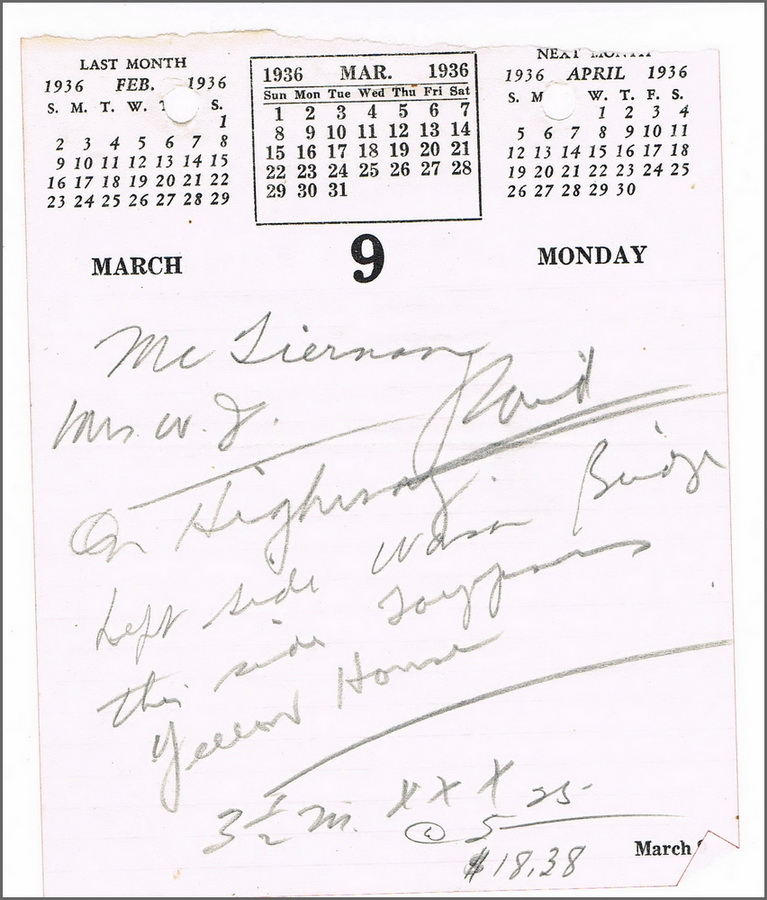 LAST MONTH
1936 FEB. 1936
S. M. T. W. T S.
1
2 3 4 5 6 7 8
9 10 11 12 13 14 15
16 17 18 19 20 21 22
23 24 25 26 27 28 29
1936 MAR. 1936
Sun Mon Tue Wed Thu Fri Sat
1 2 3 4 5 6 7
8 9 10 11 12 13 14
15 16 17 18 19 20 21
22 23 24 25 26 27 28
29 30 31
NEXT MONTH
1936 APRIL 1936
S. M W. T. F. S.
1 2 3 4
5 6 7 8 9 10 11
12 13 14 15 16 17 18
19 20 21 22 23 24 25
26 27 28 29 30
MARCH 9 MONDAY
Mc Tiernan
Mrs. W. J. Paid
On Highway.
Left side Wason Bridge
this side
Yellow House
3 1/2 m. X X X 25
@ 5
$18.38
March